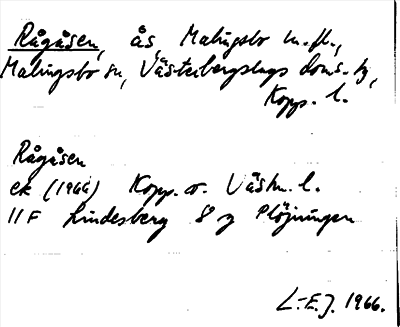 Rågåsen, ås, Malingsbo m.fl.,
Malingsbo sn, Västerbergslags doms. tg,
Kopp. l.
Rågåsen
ek (1966) Kopp. o. Västm. l.
11F Lindesberg 8 g Plöjningen
L-E.J. 1966.